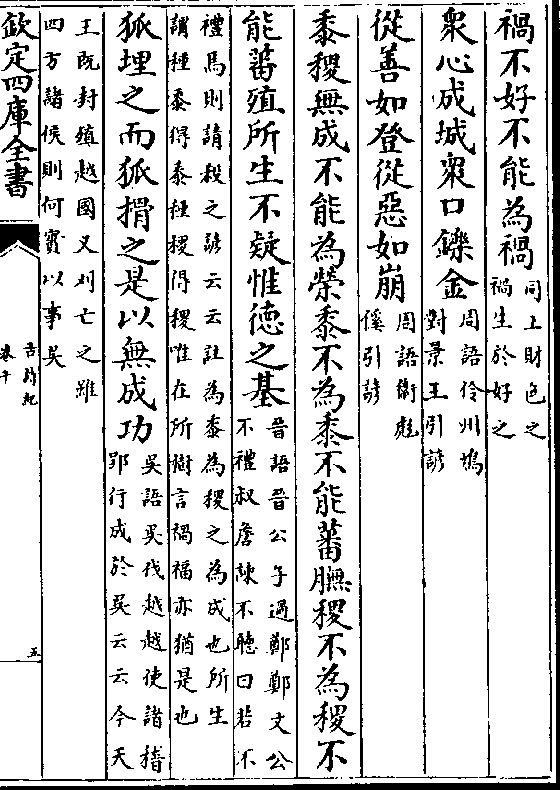 禍不好不能為禍同上財色之
禍生於好之
衆心成城衆口鑠金周語伶州鳩
對景王引諺
從善如登從惡如崩周語衛彪
傒引諺
黍稷無成不能為榮黍不為黍不能蕃膴稷不為稷不
能蕃殖所生不疑惟徳之基晉語晉公子過鄭鄭文公
不禮叔詹諫不聽曰若不
禮焉則請殺之諺云云註為黍為稷之為成也所生
謂種黍得黍種稷得稷唯在所樹言禍福亦猶是也
狐埋之而狐搰之是以無成功吳語吳伐越越使諸稽
郢行成於吳云云今天
王既封殖越國又刈亡之雖
四方諸侯則何實以事吳
欽定四庫全書
古詩紀
卷十
五